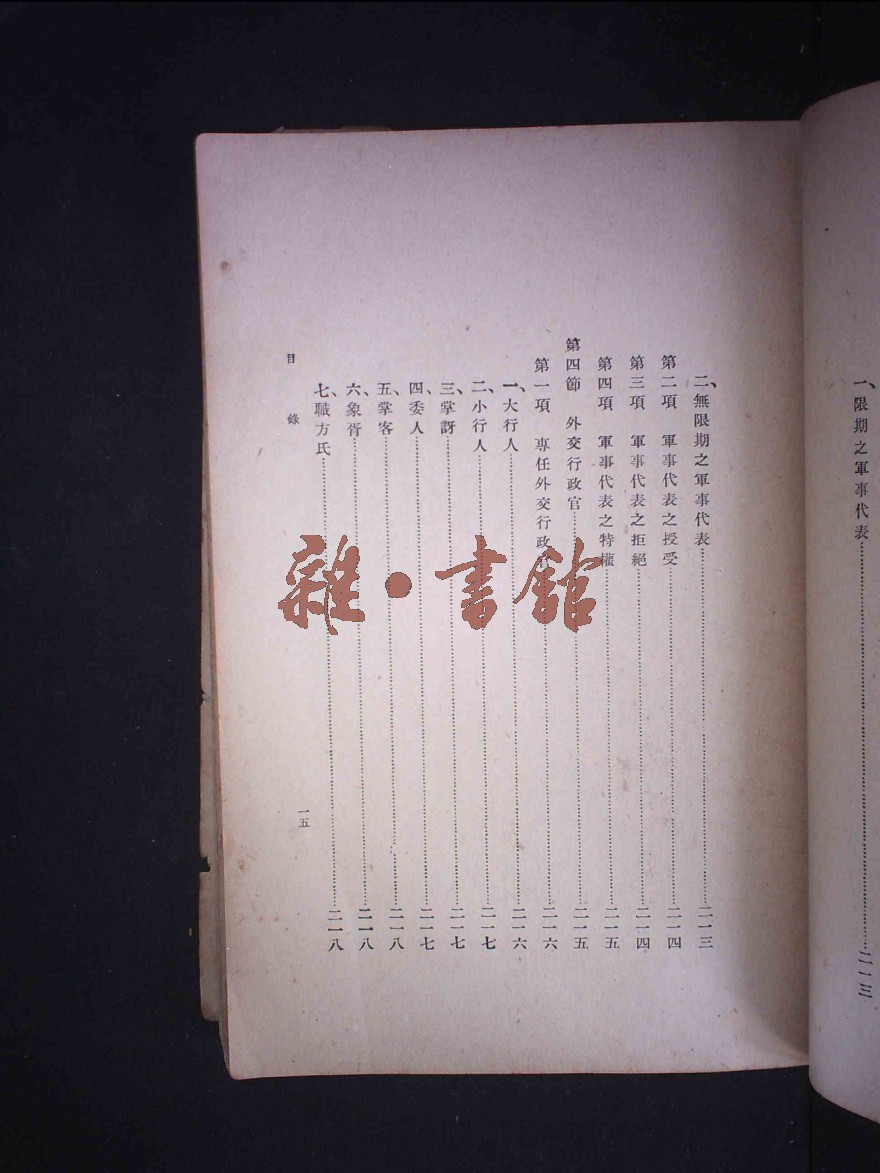 一、限期之軍事代表……二一三
二、無限期之軍事代表……二一三
第二項　軍事代表之授受……二一四
第三項　軍事代表之拒絕……二一四
第四項　軍事代表之特權……二一五
第四節　外交行政官……二一五
第一項　專任外交行政官……二一六
一、大行人……二一六
二、小行人……二一七
三、掌訝……二一七
四、委人……二一七
五、掌客……二一八
六、象胥……二一八
七、職方氏……二一八
目錄
一五
雜·書館